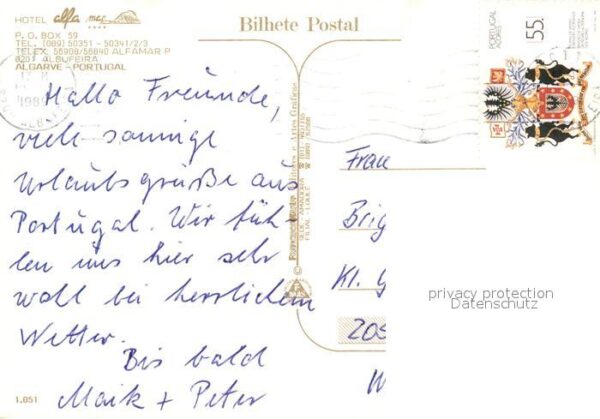 HOTEL alfa mar
Bilhete Postal
P. O. BOX 59
TEL. (089) 50351 - 50341/2/3
TELEX 56908/56840 ALFAMAR P
8201 ALBUFEIRA
ALGARVE - PORTUGAL
PORTUGAL
AÇORES
55.
Hallo Freunde,
viele sonnige
Urlaubsgrüße aus
Portugal. Wir füh-
len uns hier sehr
wohl bei herrlichem
Wetter.
Bis bald
Maik + Peter
Frau
Brig
Kl. G
205
W
privacy protection
Datenschutz
1.051